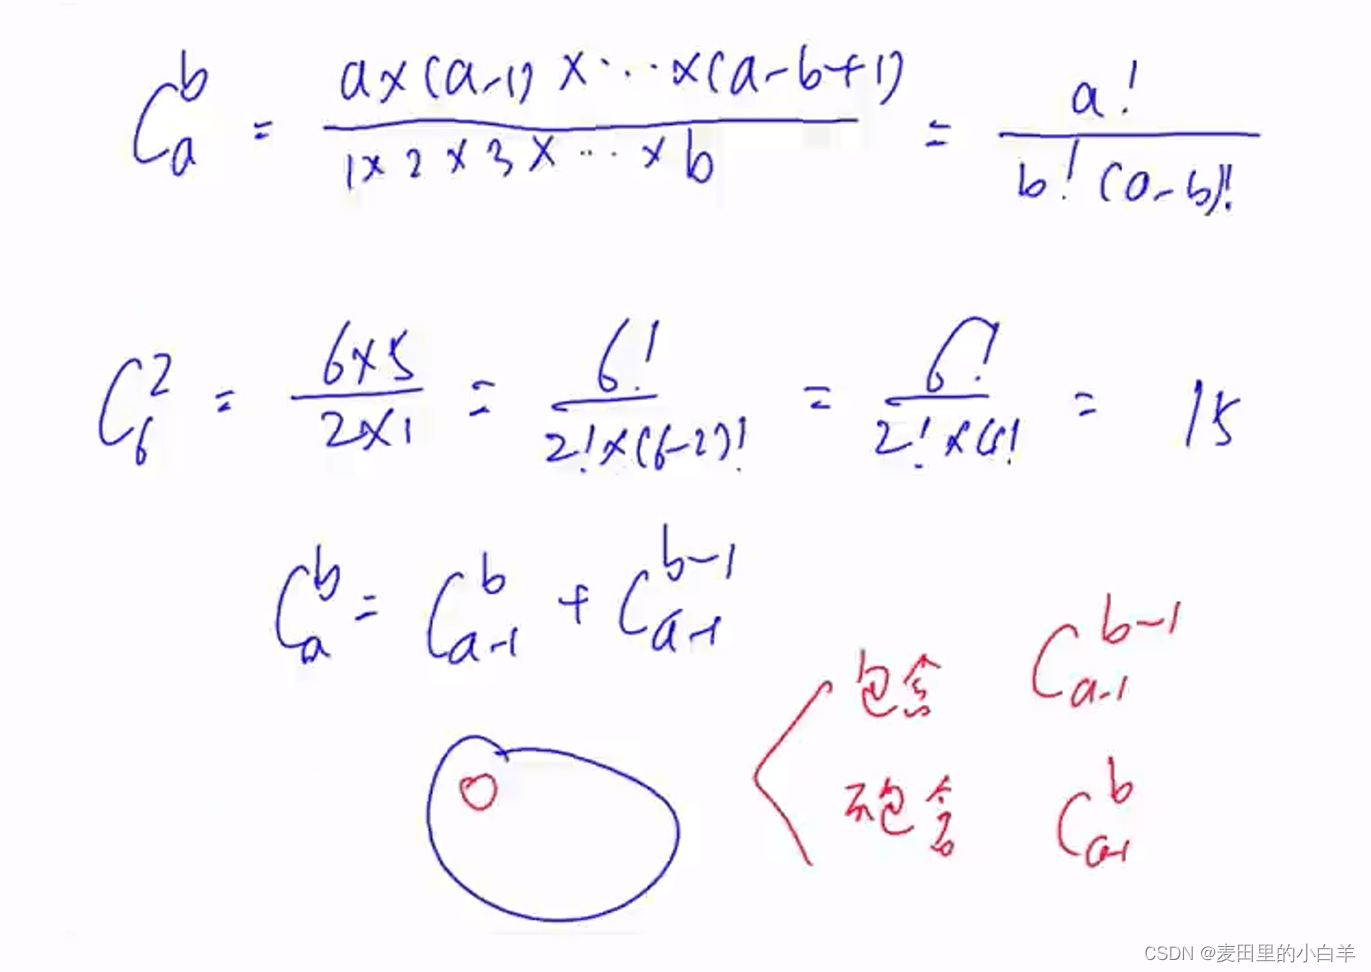 C_a^b = a×(a-1)×···×(a-b+1) / 1×2×3×···×b = a! / b!(a-b)!
C_6^2 = 6×5 / 2×1 = 6! / 2!×(6-2)! = 6! / 2!×4! = 15
C_a^b = C_{a-1}^b + C_{a-1}^{b-1}
包含 C_{a-1}^{b-1}
不包含 C_{a-1}^b
CSDN @麦田里的小白羊